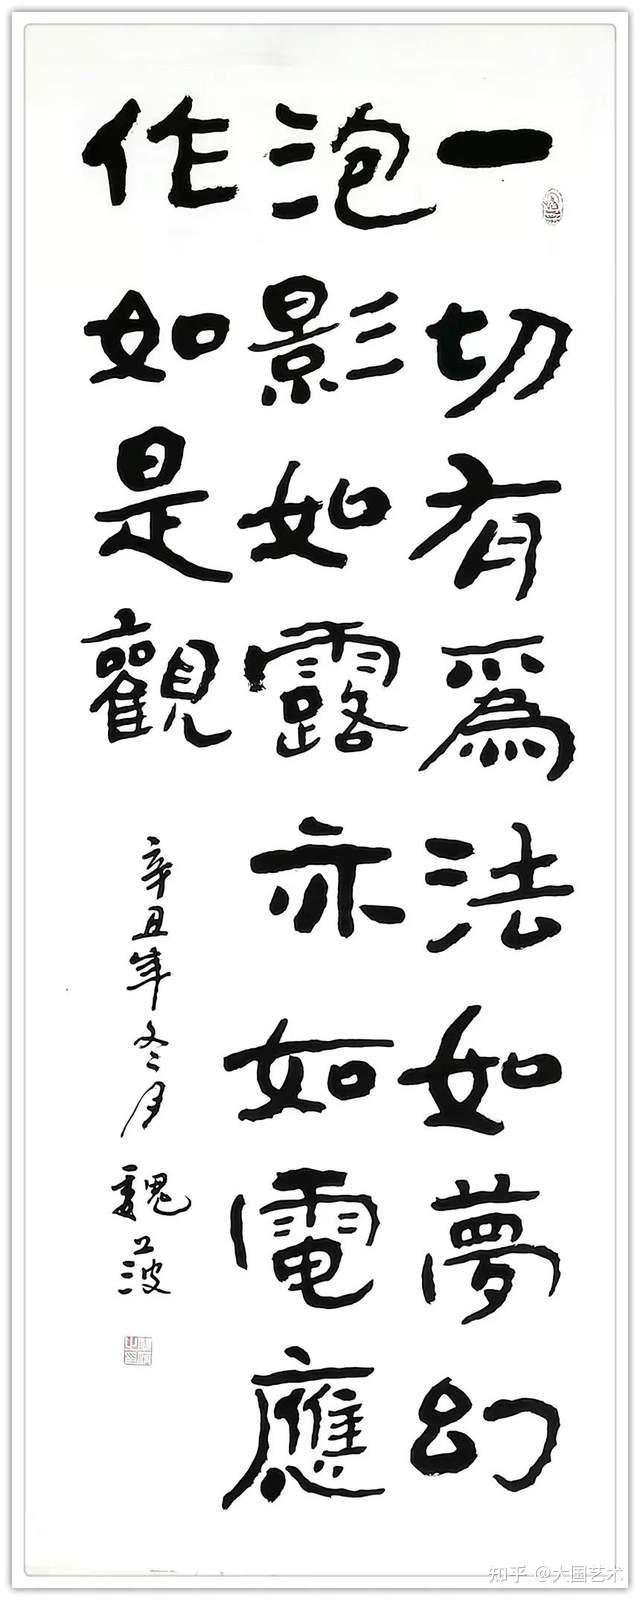 一切有爲法如夢幻
泡影如露亦如電應
作如是觀
辛丑年冬月 魏
知乎 @大国艺术